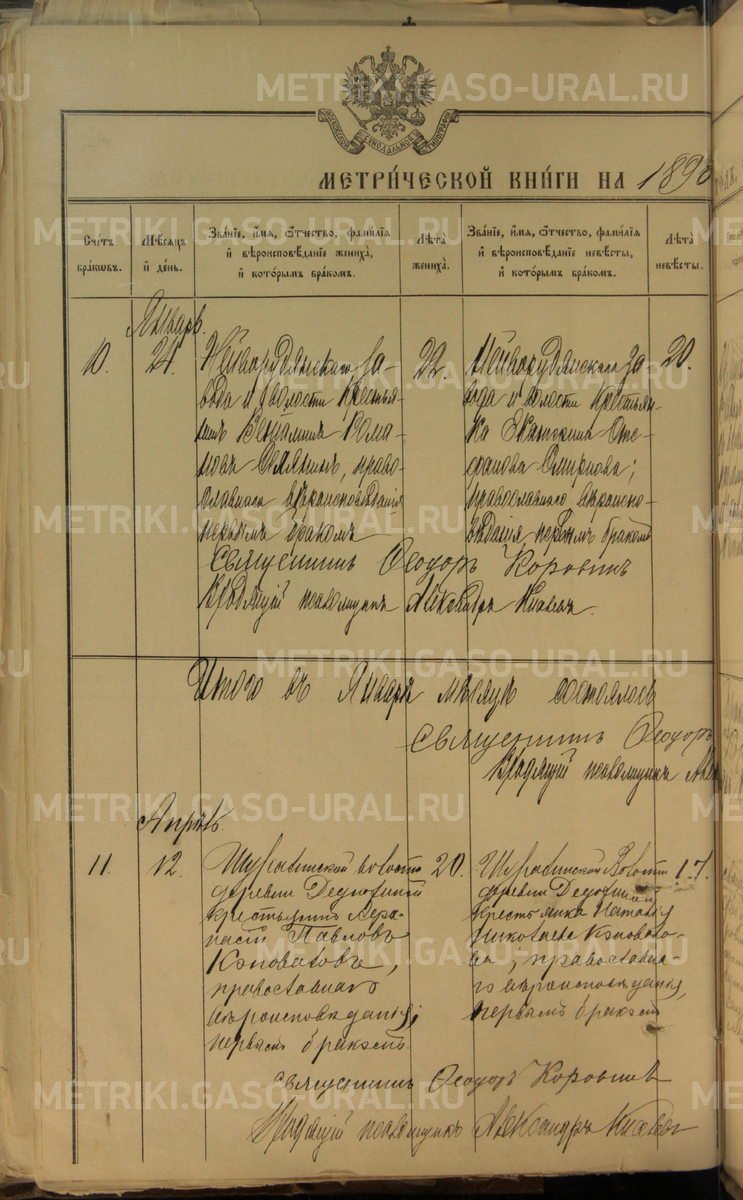 METRIKI.GASO-URAL.RU
МОСКОВСКОЙ СѴНОДАЛЬНОЙ ТИПОГРАФІИ
МЕТРИ́ЧЕСКОЙ КНИ́ГИ НА 1890
Сче́тъ бра́ковъ.
Мѣ́сяцъ и де́нь.
Зва́ніе, и́мя, ѻ́тчество, фами́лія и вѣроисповѣ́даніе жениха̀, и кото́рымъ бра́комъ.
Лѣ́та жениха̀.
Зва́ніе, и́мя, ѻ́тчество, фами́лія и вѣроисповѣ́даніе невѣ́сты, и кото́рымъ бра́комъ.
Лѣ́та невѣ́сты.
Январь.
10.
24.
Нейворудянскаго за-
вода и волости крестья-
нинъ Веніаминъ Рома-
новъ право-
славнаго вѣроисповѣданія
первымъ бракомъ
22.
Нейворудянскаго за-
вода и волости крестьян-
ка Екатерина Сте-
фанова Смирнова;
православнаго вѣроиспо-
вѣданія первымъ бракомъ
20.
Священникъ Ѳеодоръ Коровинъ
псаломщикъ Александръ
METRIKI.GASO-URAL.RU
Итого въ Январѣ мѣсяцѣ состоялось
Священникъ Ѳеодоръ
псаломщикъ
Апрѣль.
11.
12.
Шуралинской волости
деревни
крестьянинъ
Павловъ
Коноваловъ,
православнаго
вѣроисповѣданія;
первымъ бракомъ
20.
Шуралинской Волости
деревни
крестьянка Наталія
Николаева Коновало-
ва, православна-
го вѣроисповѣданія,
первымъ бракомъ
17.
Священникъ Ѳеодоръ Коровинъ
псаломщикъ Александръ
METRIKI.GASO-URAL.RU